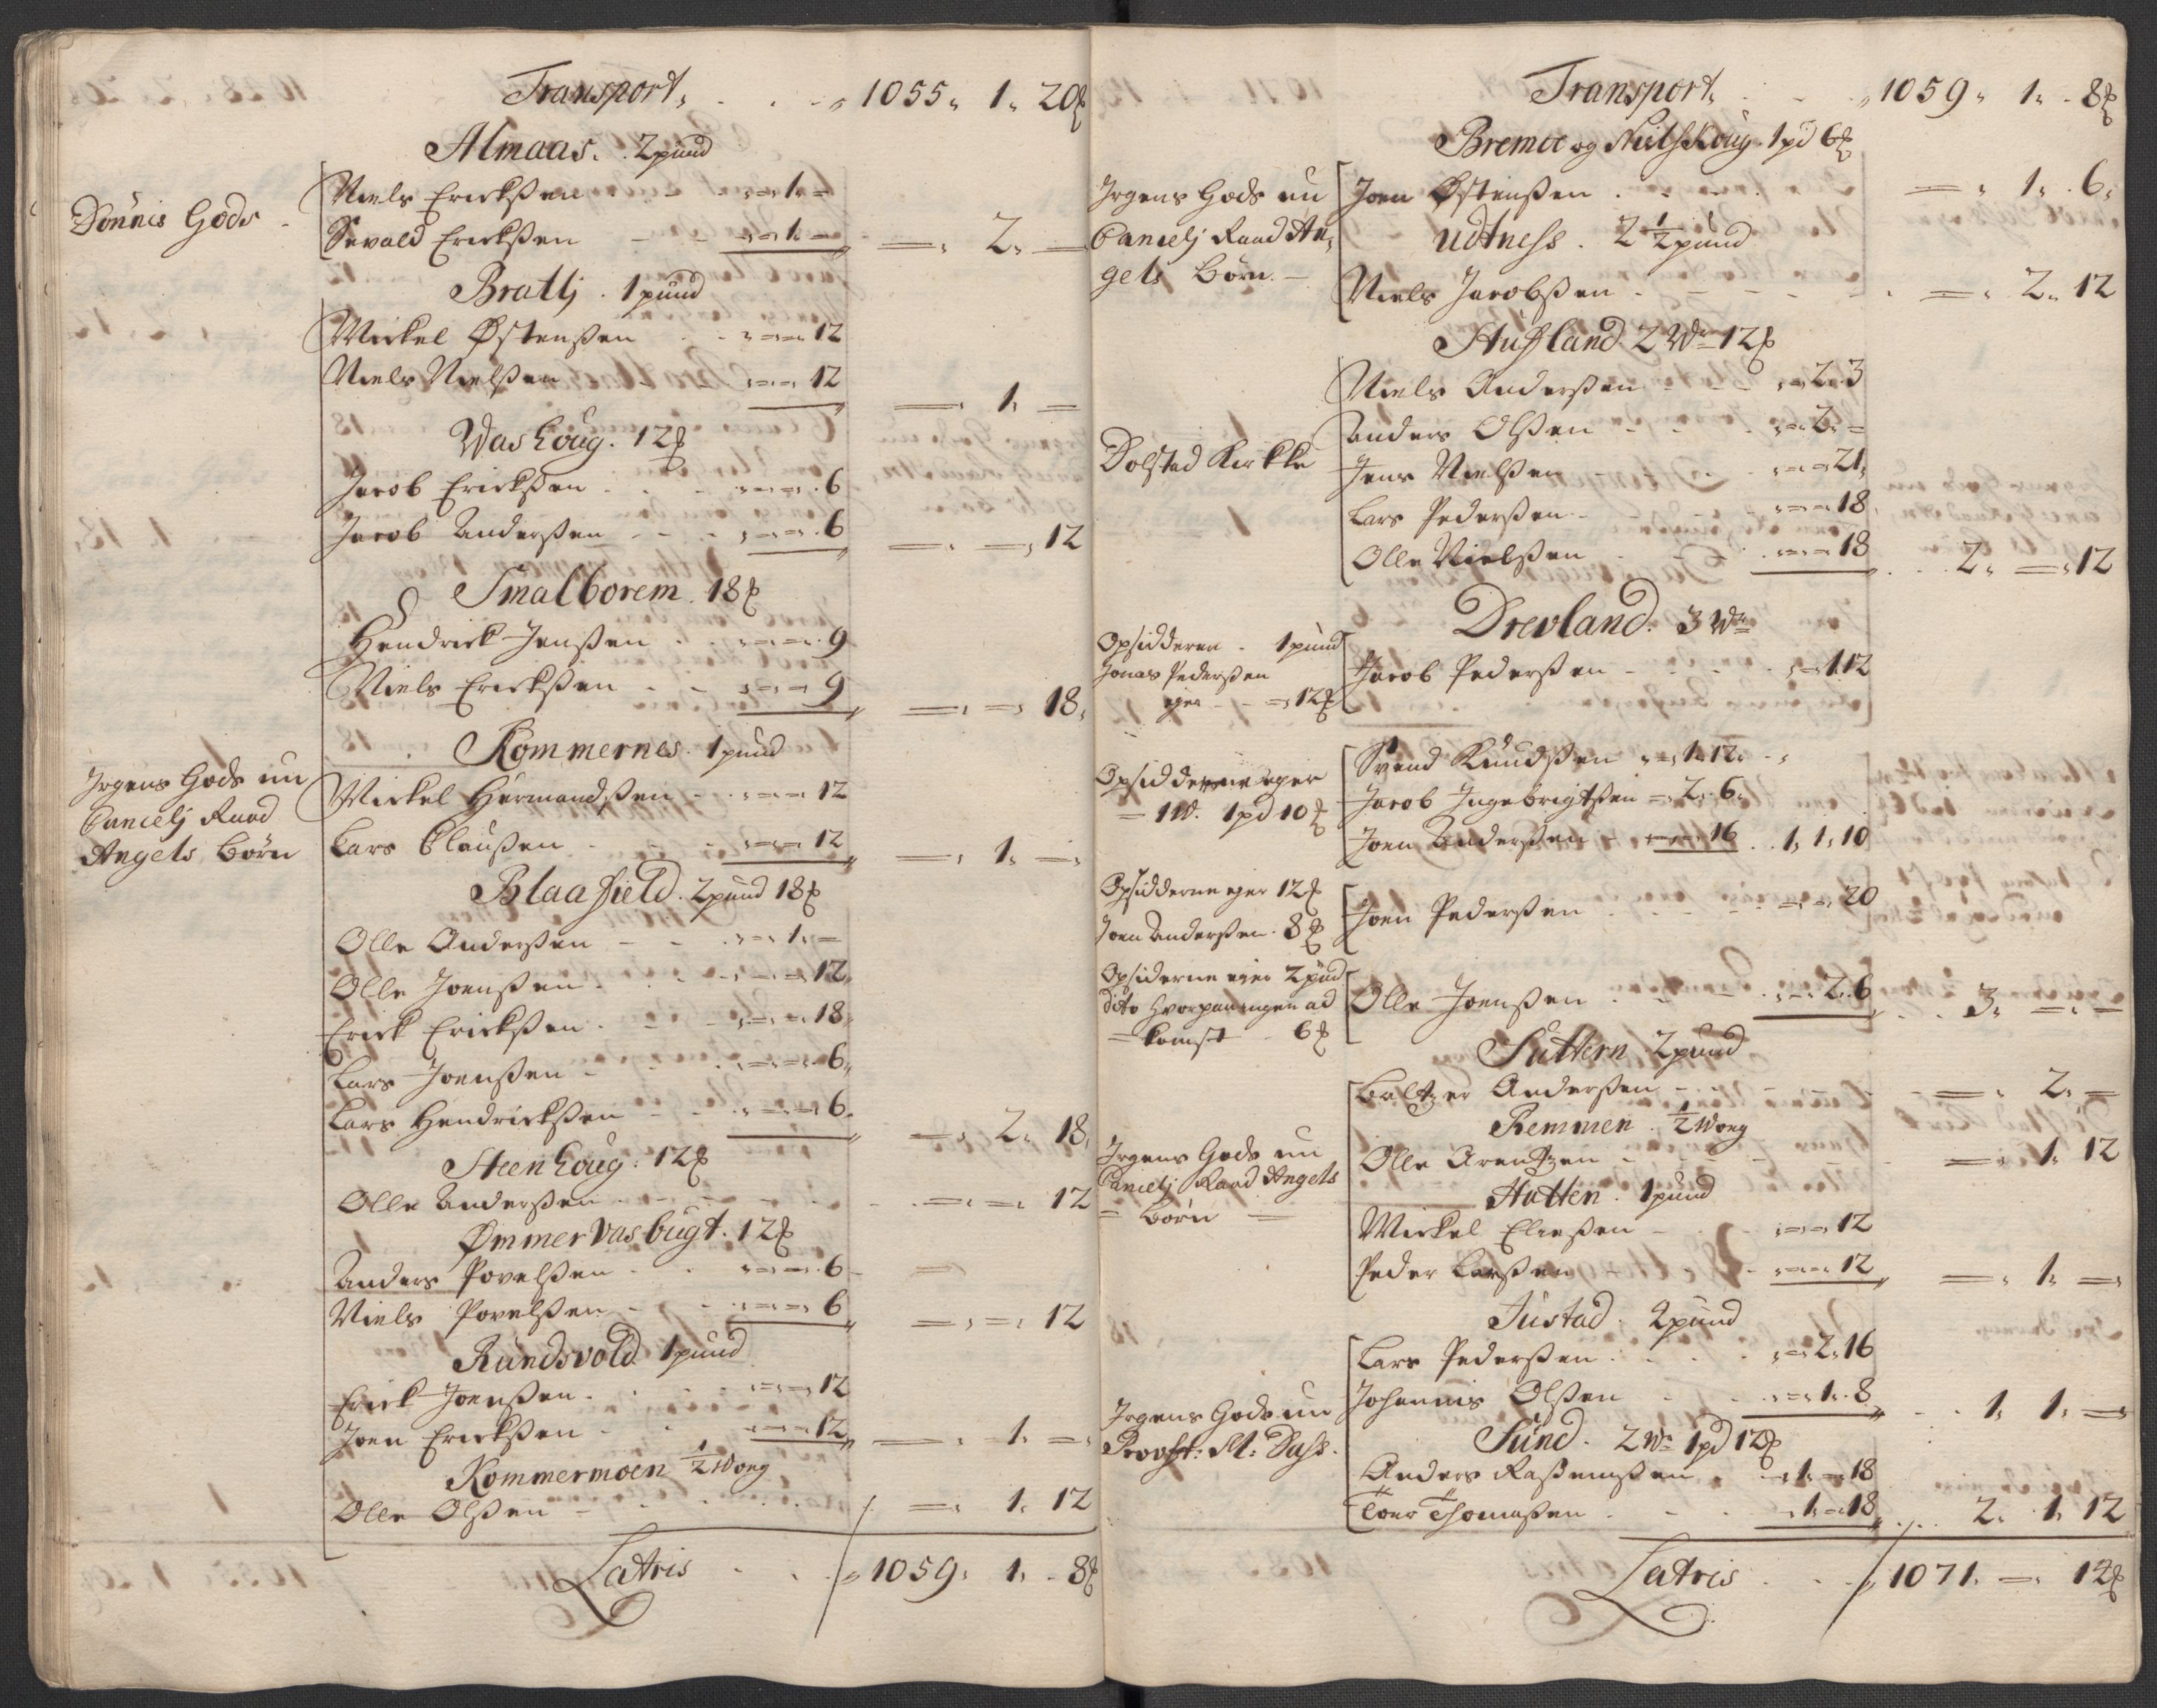 Transport, . . . „ 1055„ 1„ 20℔
Almaas. 2 pund
Dönnis Gods
Niels Erichßen - - „=„ 1„ =
Sevald Erichßen - - „=„ 1„ = =„ 2„ =
Brattj. 1 pund
Mickel Østenßen . . „=„=„ 12
Niels Nielßen - - „=„=„ 12 =„ 1„ =
Washoug. 12℔
Jacob Erichßen . . „=„=„ 6
Jacob Anderßen - - „=„=„ 6 =„ =„ 12
Smalborem. 18℔
Hendrick Jenßen . . „=„=„ 9
Niels Erichßen . . „=„=„ 9 =„ =„ 18„
Kommernes. 1 pund
Jrgens Gods nu
Cancelj Raad
Angels Börn
Mickel Hermandßen - „=„=„ 12
Lars Claußen - - „=„=„ 12 =„ 1„ =„
Blaafield. 2 pund 18℔
Olle Anderßen - - „=„ 1„ =
Olle Joenßen - - „=„=„ 12„
Erick Erickßen . - „=„=„ 18„
Lars Joenßen - - „=„=„ 6„
Lars Hendrickßen - - „=„=„ 6„ =„ 2„ 18„
Steenhoug: 12℔
Olle Anderßen - - - - =„ =„ 12
Ømmervasbugt. 12℔
Anders Povelßen . . „=„=„ 6
Niels Povelßen - - „=„=„ 6 =„ =„ 12
Rundsvold 1 pund
Erick Joenßen . . . „=„=„ 12
Joen Erickßen . . „=„=„ 12 =„ 1„ =„
Kommermoen ½ Woeg
Olle Olßen - - - . . =„ 1„ 12
Latris . . . „ 1059„ 1„ 8℔
Transport„ . . „ 1059„ 1„ 8℔
Bremoe og Nielshoug. 1 pd 6℔
Jrgens Gods nu
Cancelj Raad An„
gels Börn. -
Joen Østenßen . - - . =„ 1„ 6„
Udtness. 2½ pund
Niels Jacobßen - - - - =„ 2„ 12
Husland 2 Wr 12℔
Dolstad Kirkke
Niels Anderßen - - - „=„ 2„ 3
Anders Olßen - . . „=„ 2„ =
Jens Nielßen - . . „=„=„ 21„
Lars Pederßen - - - „=„=„ 18„
Olle Nielßen . . „=„=„ 18 2„ =„ 12
Drevland. 3 Wr
Opsidderen . 1 pund
Jonas Pederßen
ejer - - =„ 12℔
Jacob Pederßen - - . „=„ 1„ 12
Opsidderne ejer
= 1 W. 1 pd 10℔
Svend Knudßen „=„ 1„ 12„ „
Jacob Ingebrigtßen =„ 2„ 6„
Joen Anderßen - „=„=„ 16 . . 1„ 1„ 10
Opsidderne ejer 12℔
Joen Anderßen. 8℔
Joen Pederßen . . . „=„=„ 20
Opsiderne eier 2 pund
dito hvorpaa ingen ad
= komst - 6℔
Olle Joenßen . . - „=„ 2„ 6 3„ =„ =
Suttern 2 pund
Baltzer Anderßen - - - =„ 2„ =
Remmen. ½ Woeg
Jrgens Gods nu
Cancelj Raad Angels
= Börn =
Olle Arentzen - - - - =„ 1„ 12
Hatten. 1 pund
Mickel Eließen - - „=„=„ 12
Peder Larßen - - „=„=„ 12 =„ 1„ =„
Justad. 4 pund
Lars Pederßen . . . „=„ 2„ 16
Johannis Olßen . . „=„ 1„ 8 1„ 1„ =„
Jrgens Gods nu
Provst: M: Dass.
Sund. 2 Wr 1 pd 12℔
Anders Raßmußen . „ 1„ =„ 18
Toer Thomaßen . - „ 1„ =„ 18 2„ 1„ 12
Latris . . . „ 1071„ =„ 12℔